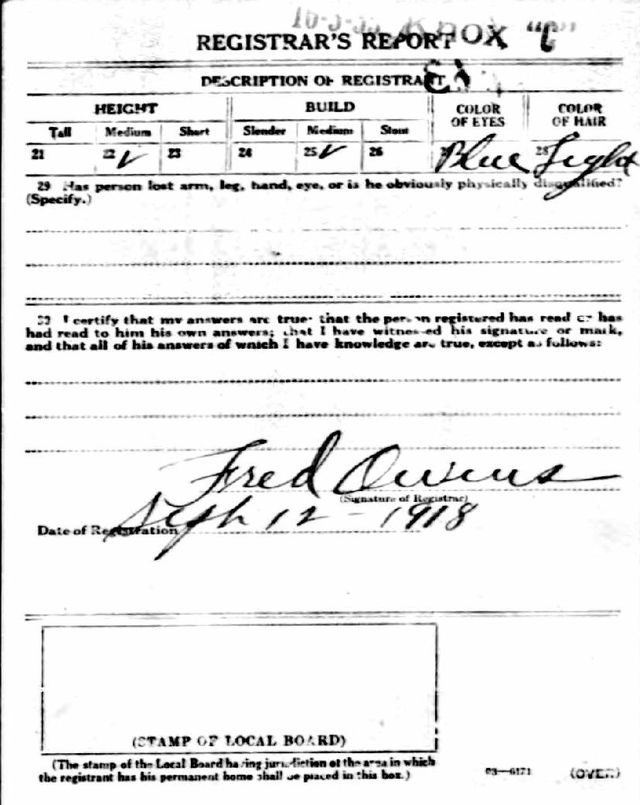 16-3-35 A KNOX "C"
REGISTRAR'S REPORT
DESCRIPTION OF REGISTRANT
HEIGHT BUILD COLOR OF EYES COLOR OF HAIR
Tall Medium Short Slender Medium Stout
21 22 ✓ 23 24 25 ✓ 26 27 Blue 28 Light
29 Has person lost arm, leg, hand, eye, or is he obviously physically disqualified?
(Specify.)
30 I certify that my answers are true; that the person registered has read or has
had read to him his own answers; that I have witnessed his signature or mark,
and that all of his answers of which I have knowledge are true, except as follows:
Fred Owens
(Signature of Registrar)
Date of Registration Sept 12 - 1918
(STAMP OF LOCAL BOARD)
(The stamp of the Local Board having jurisdiction of the area in which
the registrant has his permanent home shall be placed in this box.)
03—6171 (OVER)